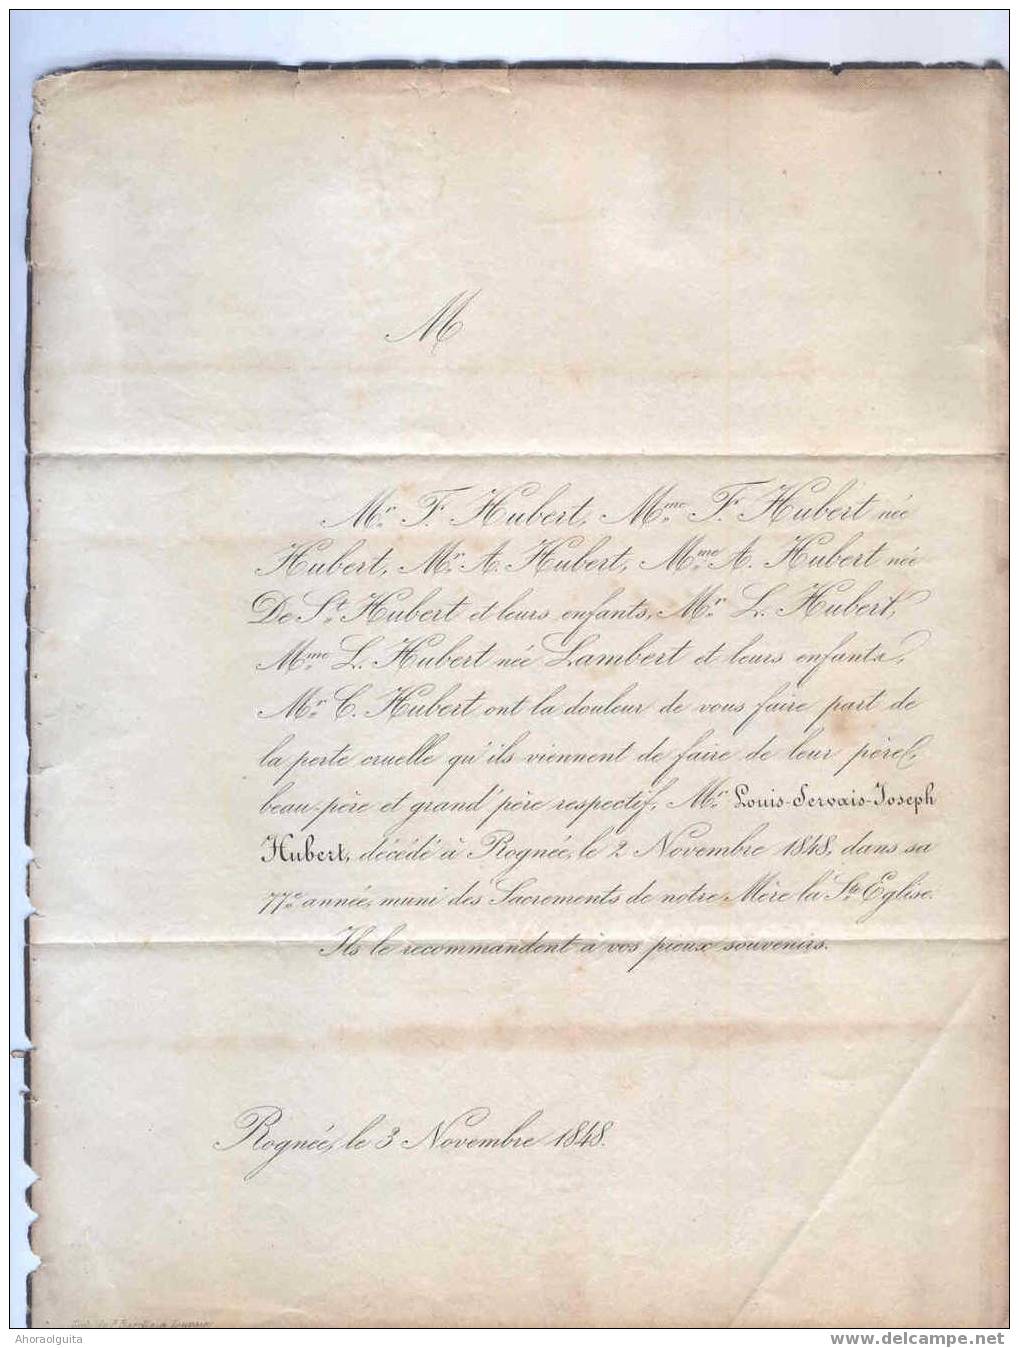 M
Mr. F. Hubert, Mme. F. Hubert née
Hubert, Mr. A. Hubert, Mme. A. Hubert née
De St. Hubert et leurs enfants, Mr. L. Hubert,
Mme. L. Hubert née Lambert et leurs enfants,
Mr. C. Hubert ont la douleur de vous faire part de
la perte cruelle qu'ils viennent de faire de leur père,
beau-père et grand'père respectif, Mr. Louis-Servais-Joseph
Hubert, décédé à Rognée, le 2 Novembre 1848, dans sa
77e. année, muni des Sacrements de notre Mère la Ste. Eglise.
Ils le recommandent à vos pieux souvenirs.
Rognée, le 3 Novembre 1848.
Ahoraolguita
www.delcampe.net